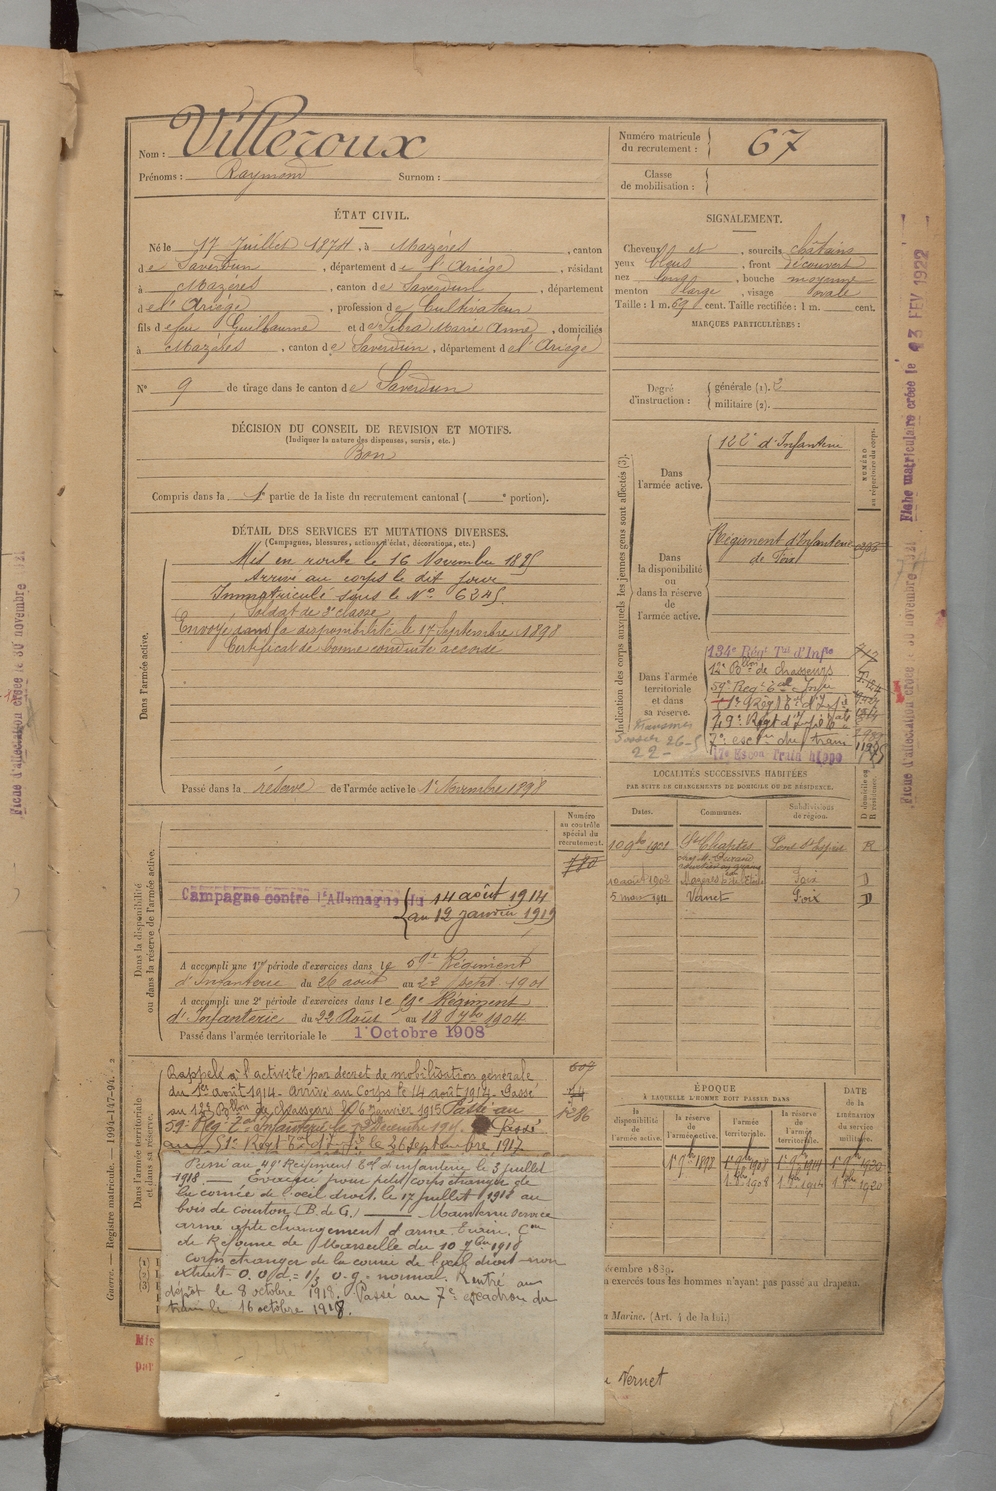 Nom : Villeroux
Prénoms : Raymond Surnom :
Numéro matricule du recrutement : 67
Classe de mobilisation :
ÉTAT CIVIL.
Né le 17 Juillet 1874, à Mazères, canton
de Saverdun, département de l'Ariège, résidant
à Mazères, canton de Saverdun, département
de l'Ariège, profession de Cultivateur
fils de feu Guilhaume et de Marie Anne, domiciliés
à Mazères, canton de Saverdun, département de l'Ariège
N° 9 de tirage dans le canton de Saverdun
SIGNALEMENT.
Cheveux et, sourcils châtains
yeux bleus, front découvert
nez long, bouche moyenne
menton large, visage ovale
Taille : 1 m. 69 cent. Taille rectifiée : 1 m. cent.
MARQUES PARTICULIÈRES :
Degré d'instruction : générale (1). 2
militaire (2).
DÉCISION DU CONSEIL DE REVISION ET MOTIFS.
(Indiquer la nature des dispenses, sursis, etc.)
Bon
Compris dans la 1e partie de la liste du recrutement cantonal ( e portion).
DÉTAIL DES SERVICES ET MUTATIONS DIVERSES.
(Campagnes, blessures, actions d'éclat, décorations, etc.)
Dans l'armée active.
Mis en route le 16 Novembre 1895
Arrivé au corps le dit jour
Immatriculé sous le N° 6245
Soldat de 2e classe
Envoyé dans la disponibilité le 17 Septembre 1898
Certificat de bonne conduite accordé
Passé dans la réserve de l'armée active le 1er Novembre 1898
Indication des corps auxquels les jeunes gens sont affectés (3).
NUMÉRO au répertoire du corps.
Dans l'armée active.
122e d'Infanterie
Dans la disponibilité ou dans la réserve de l'armée active.
Régiment d'Infanterie
de Foix
Dans l'armée territoriale et dans sa réserve.
134e Régt Tal d'Infie
12e Bllon de chasseurs
59e Regt Tal Infie
7e escon du train
17e Escon Train hippo
LOCALITÉS SUCCESSIVES HABITÉES
PAR SUITE DE CHANGEMENTS DE DOMICILE OU DE RÉSIDENCE.
Dates. Communes. Subdivisions de région. D domicile ou R résidence.
10 9bre 1901 St Chaptes Pont St Esprit R
10 août 1902 Mazères Foix D
5 mars 1911 Vernet Foix D
Dans la disponibilité ou dans la réserve de l'armée active.
Numéro au contrôle spécial du recrutement.
780
Campagne contre l'Allemagne du 14 août 1914
au 12 janvier 1919
A accompli une 1re période d'exercices dans le 59e Régiment
d'Infanterie du 26 août au 22 Sept. 1901
A accompli une 2e période d'exercices dans le 59e Régiment
d'Infanterie du 22 Août au 18 7bre 1904
Passé dans l'armée territoriale le 1 Octobre 1908
Dans l'armée territoriale et dans sa réserve.
Rappelé à l'activité par décret de mobilisation générale
du 1er août 1914. Arrivé au Corps le 14 août 1914. Passé
au 12e Bllon de chasseurs le 6 janvier 1915 Passé au
59e Reg. Tal Infanterie Passé
au 51e Regt Tal d'Inf le 26 septembre 1917
Passé au 49e Régiment Tal d'infanterie le 3 juillet
1918. — Évacué pour petit corps étranger de
la cornée de l'oeil droit le 17 juillet 1918 au
bois de couton (B. de G.) — Maintenu service
armé apte changement d'arme. Train. Con
de Réforme de Marseille du 10 7bre 1918
corps étranger de la cornée de l'oeil droit non
extrait. O.D. = 1/3 O.G. = normal. Rentré au
dépôt le 8 octobre 1918. Passé au 7e escadron du
train le 16 octobre 1918.
ÉPOQUE
À LAQUELLE L'HOMME DOIT PASSER DANS
DATE de la LIBÉRATION du service militaire.
la disponibilité de l'armée active. la réserve de l'armée active. l'armée territoriale. la réserve de l'armée territoriale.
1er 9bre 1898 1er 9bre 1908 1er 9bre 1914 1er 9bre 1920
1er 8bre 1908 1er 8bre 1914 1er 8bre 1920
écembre 1839.
exercés tous les hommes n'ayant pas passé au drapeau.
a Marine. (Art. 4 de la loi.)
Vernet
Mis
par
Guerre. — Registre matricule. 1994-147-94. 2
Fiche matriculaire créée le 13 FEV 1922
Fiche d'affectation créée le 30 novembre 1921
Fiche d'affectation créée le 30 novembre 1921